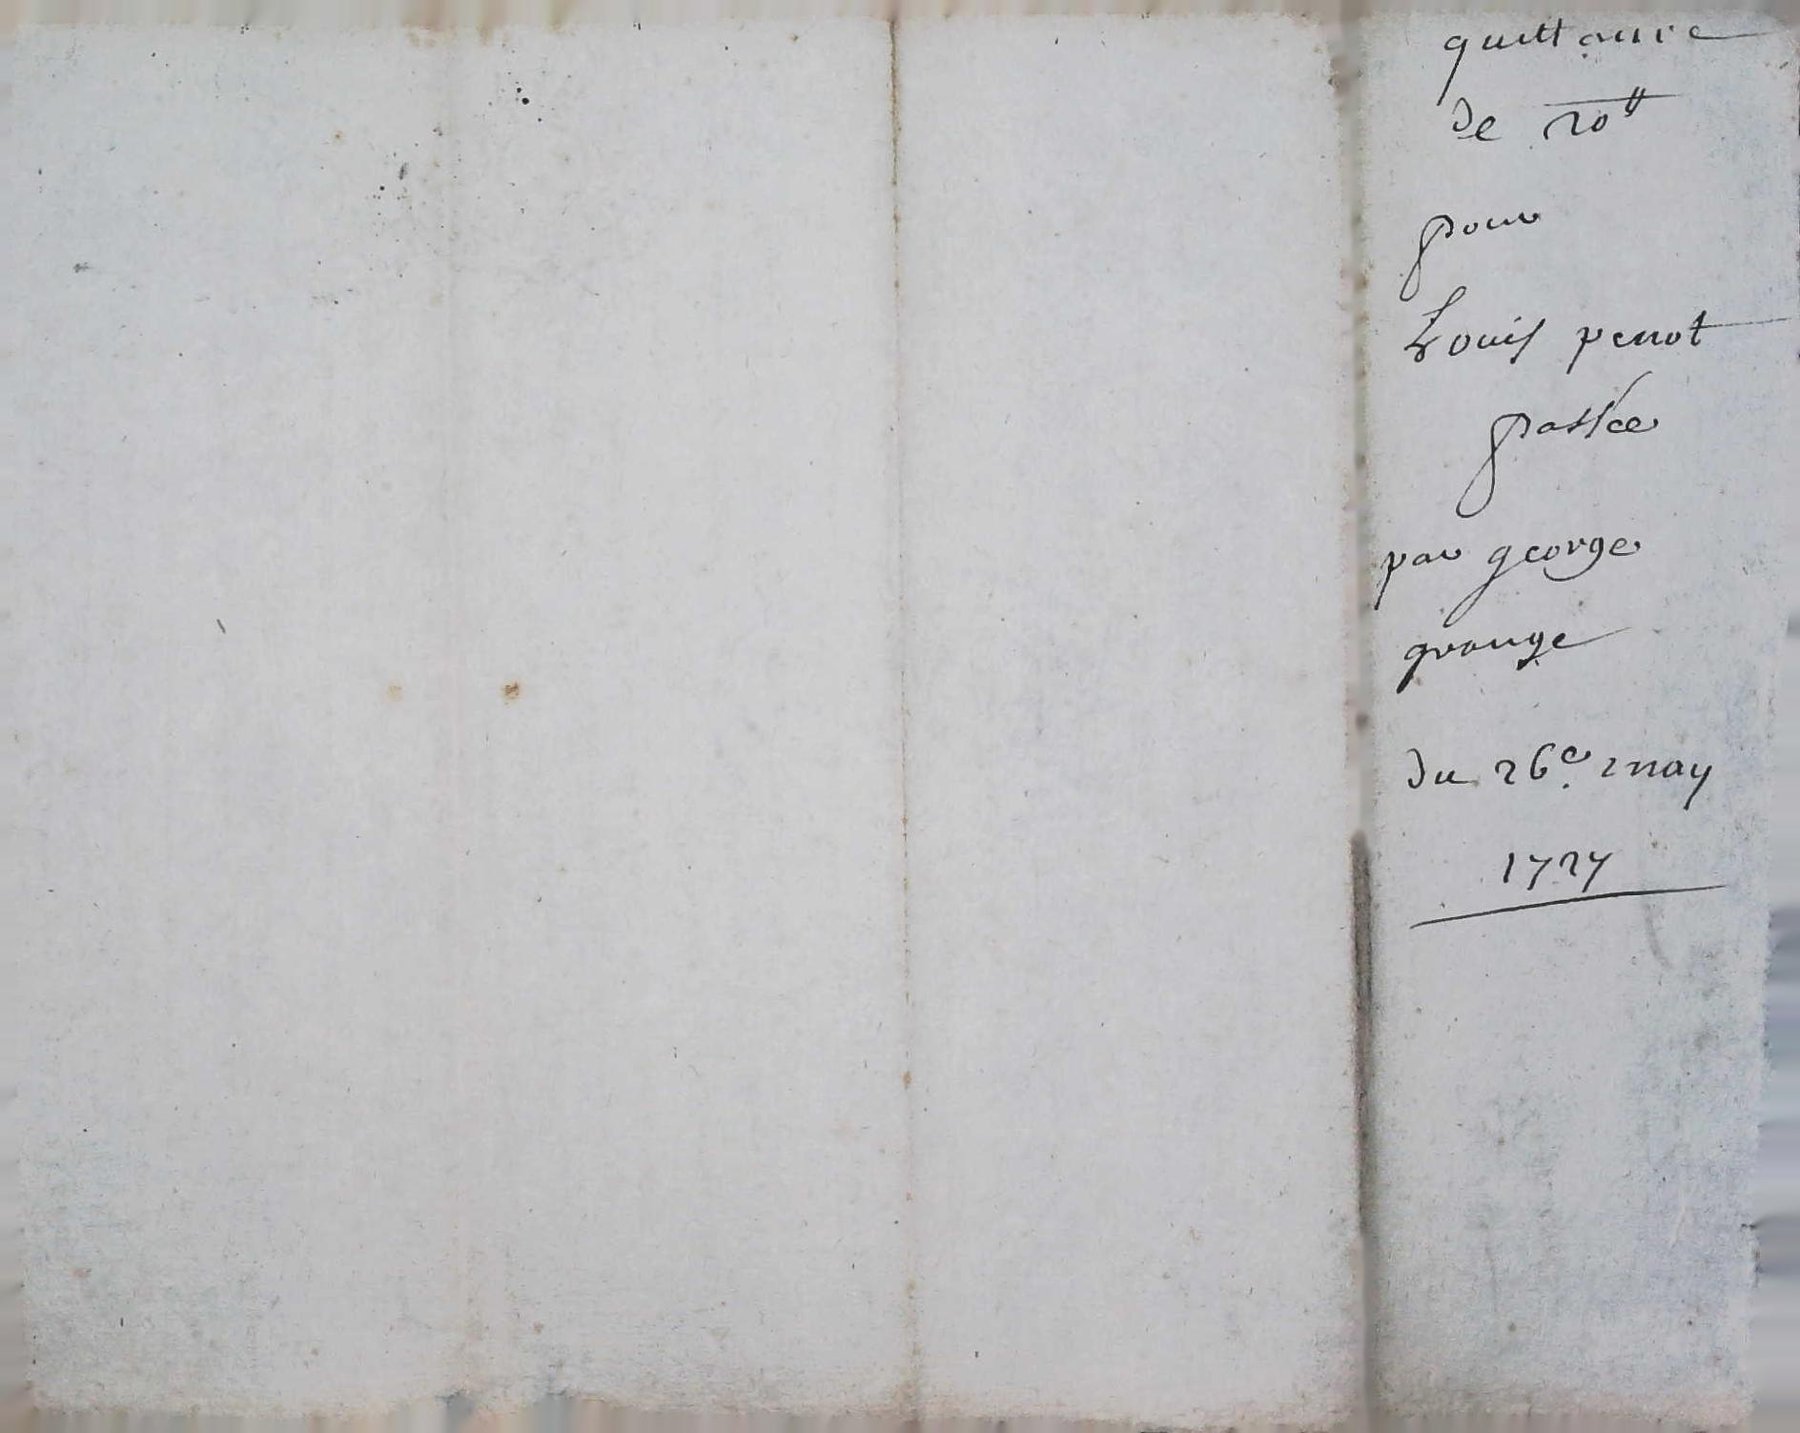 quittance
de 20ᵗᵗ
pour
Louis perrot
passée
par george
grange
du 26.e may
1727